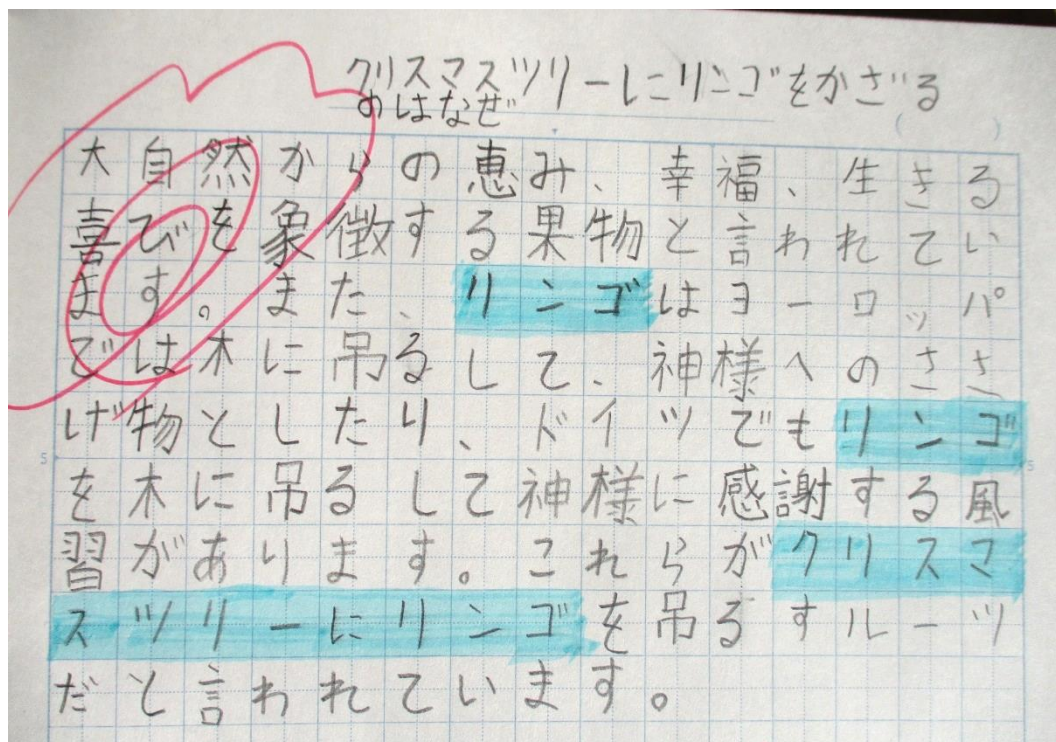 クリスマスツリーにリンゴをかざる
のはなぜ
大自然からの恵み、幸福、生きる
喜びを象徴する果物と言われてい
ます。また、リンゴはヨーロッパ
では木に吊るして、神様へのささ
げ物としたり、ドイツでもリンゴ
を木に吊るして神様に感謝する風
習があります。これらがクリスマ
スツリーにリンゴを吊るすルーツ
だと言われています。